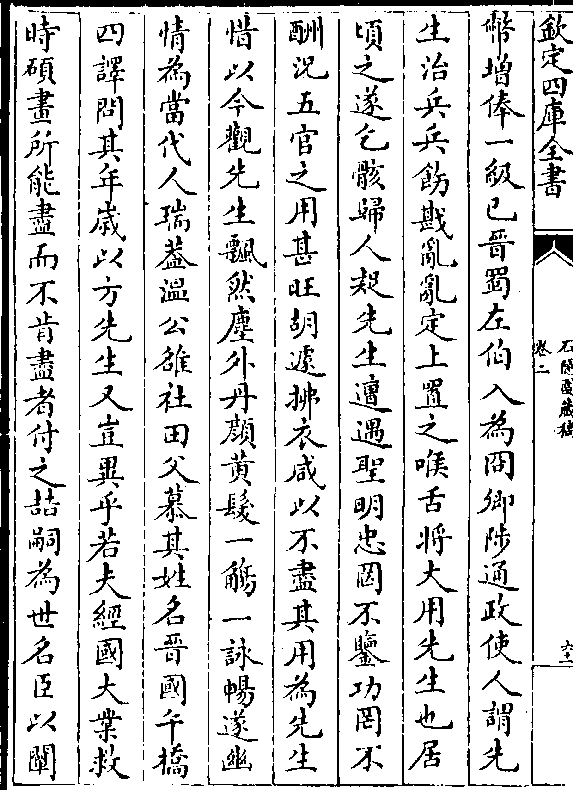 欽定四庫全書
石隱園藏稿
卷二
六十一
幣增俸一級已晉蜀左伯入為冏卿陟通政使人謂先
生治兵兵飭戡亂亂定上置之喉舌將大用先生也居
頃之遂乞骸歸人疑先生遭遇聖明忠罔不鑒功罔不
酬況五官之用甚旺胡遽拂衣咸以不盡其用為先生
惜以今觀先生飄然塵外丹顔黃髮一觴一詠暢遂幽
情為當代人瑞葢溫公雒社田父慕其姓名晉國午橋
四譯問其年歲以方先生又豈異乎若夫經國大業救
時碩畫所能盡而不肯盡者付之喆嗣為世名臣以闡